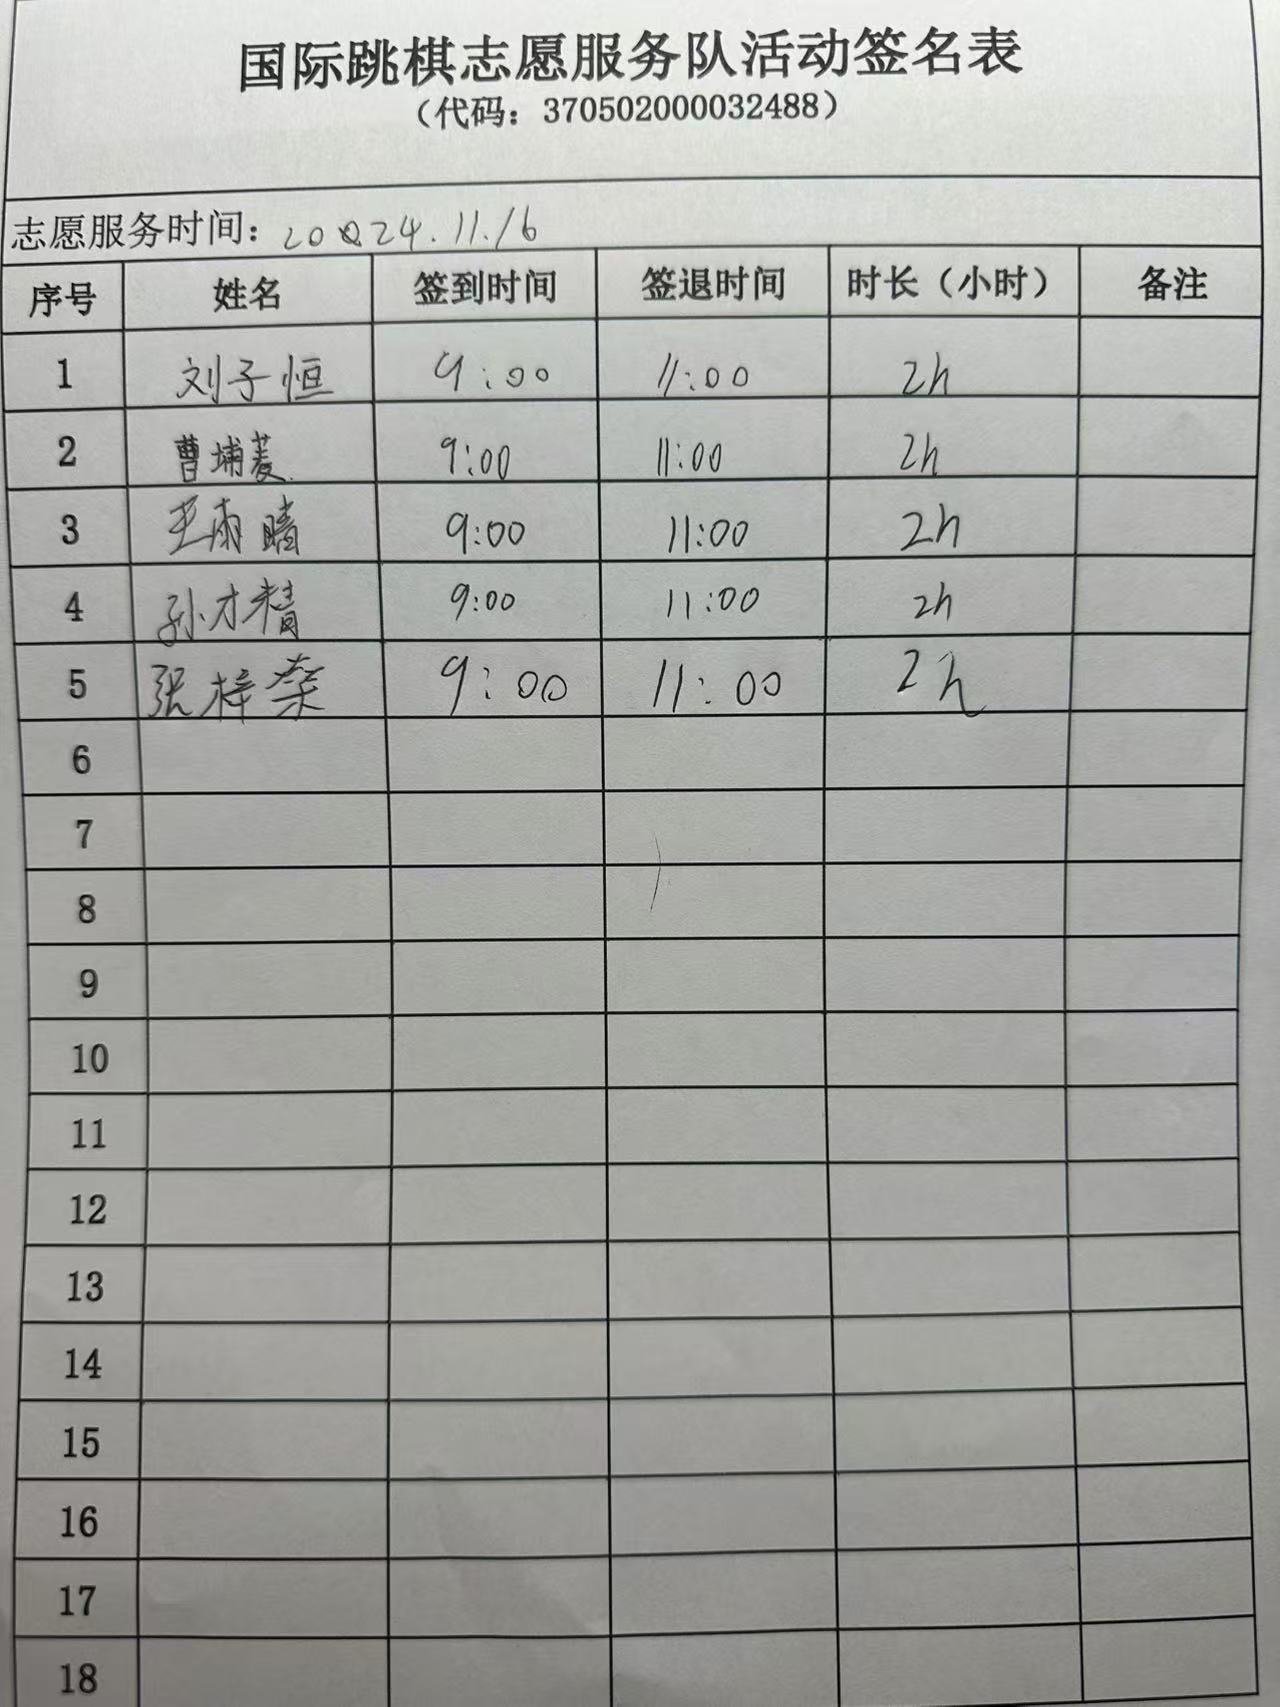 国际跳棋志愿服务队活动签名表
（代码：370502000032488）
志愿服务时间：2024.11.16
序号 姓名 签到时间 签退时间 时长（小时） 备注
1 刘子恒 9:00 11:00 2h
2 曹埔菱 9:00 11:00 2h
3 王雨晴 9:00 11:00 2h
4 孙才精 9:00 11:00 2h
5 张梓 9:00 11:00 2h
6
7
8
9
10
11
12
13
14
15
16
17
18